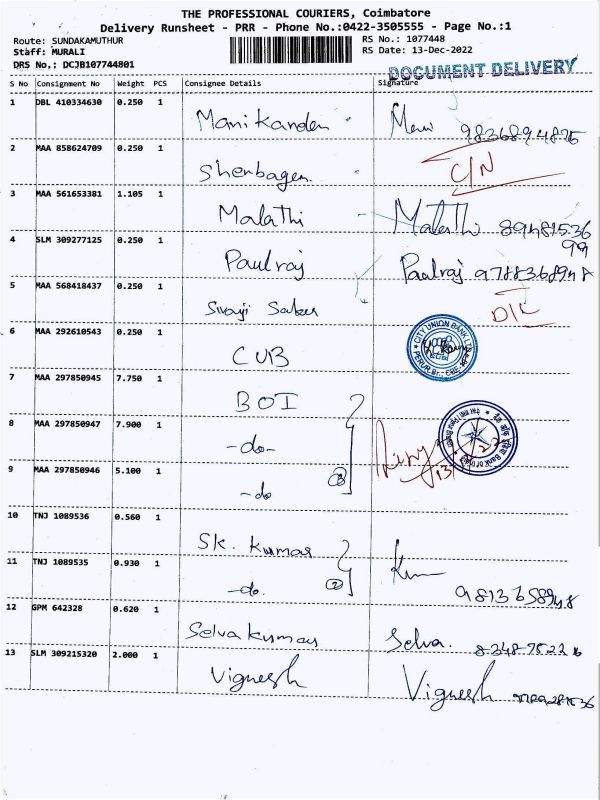 THE PROFESSIONAL COURIERS, Coimbatore
Delivery Runsheet - PRR - Phone No.:0422-3505555 - Page No.:1
Route: SUNDAKAMUTHUR RS No.: 1077448
Staff: MURALI RS Date: 13-Dec-2022
DRS No.; DCJB107744801
DOCUMENT DELIVERY
S No Consignment No Weight PCS Consignee Details Signature
1 DBL 410334630 0.250 1 Manikanden
2 MAA 858624709 0.250 1 Shenbagen. C/N
3 MAA 561653381 1.105 1 Malathi Malathi 8948153699
4 SLM 309277125 0.250 1 Paulraj Paulraj 9788368948
5 MAA 568418437 0.250 1 D/L
6 MAA 292610543 0.250 1 CUB CITY UNION BANK LTD
7 MAA 297850945 7.750 1 BOI
8 MAA 297850947 7.900 1 -do-
9 MAA 297850946 5.100 1 -do 3
10 TNJ 1089536 0.560 1 SK. Kumar
11 TNJ 1089535 0.930 1 -do. 2
12 GPM 642328 0.620 1 Selvakumar Selva.
13 SLM 309215320 2.000 1 Vignesh Vignesh